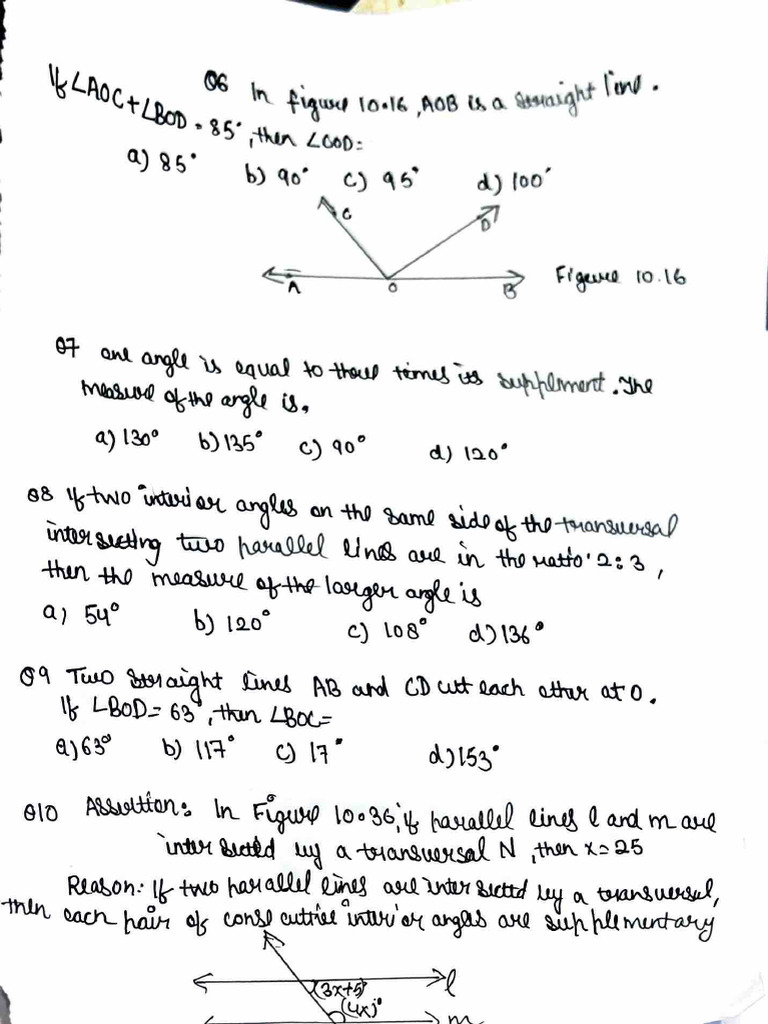 Q6 In figure 10.16, AOB is a straight line.
If ∠AOC+∠BOD = 85°, then ∠COD =
a) 85° b) 90° c) 95° d) 100°
C D
A O B Figure 10.16
Q7 one angle is equal to three times its supplement. The
measure of the angle is,
a) 130° b) 135° c) 90° d) 120°
Q8 If two interior angles on the same side of the transversal
intersecting two parallel lines are in the ratio 2:3,
then the measure of the larger angle is
a) 54° b) 120° c) 108° d) 136°
Q9 Two straight lines AB and CD cut each other at O.
If ∠BOD = 63°, then ∠BOC =
a) 63° b) 117° c) 17° d) 153°
Q10 Assertion: In Figure 10.36, if parallel lines l and m are
intersected by a transversal N, then x = 25
Reason: If two parallel lines are intersected by a transversal,
then each pair of consecutive interior angles are supplementary
l
(3x+5)°
(4x)°
m